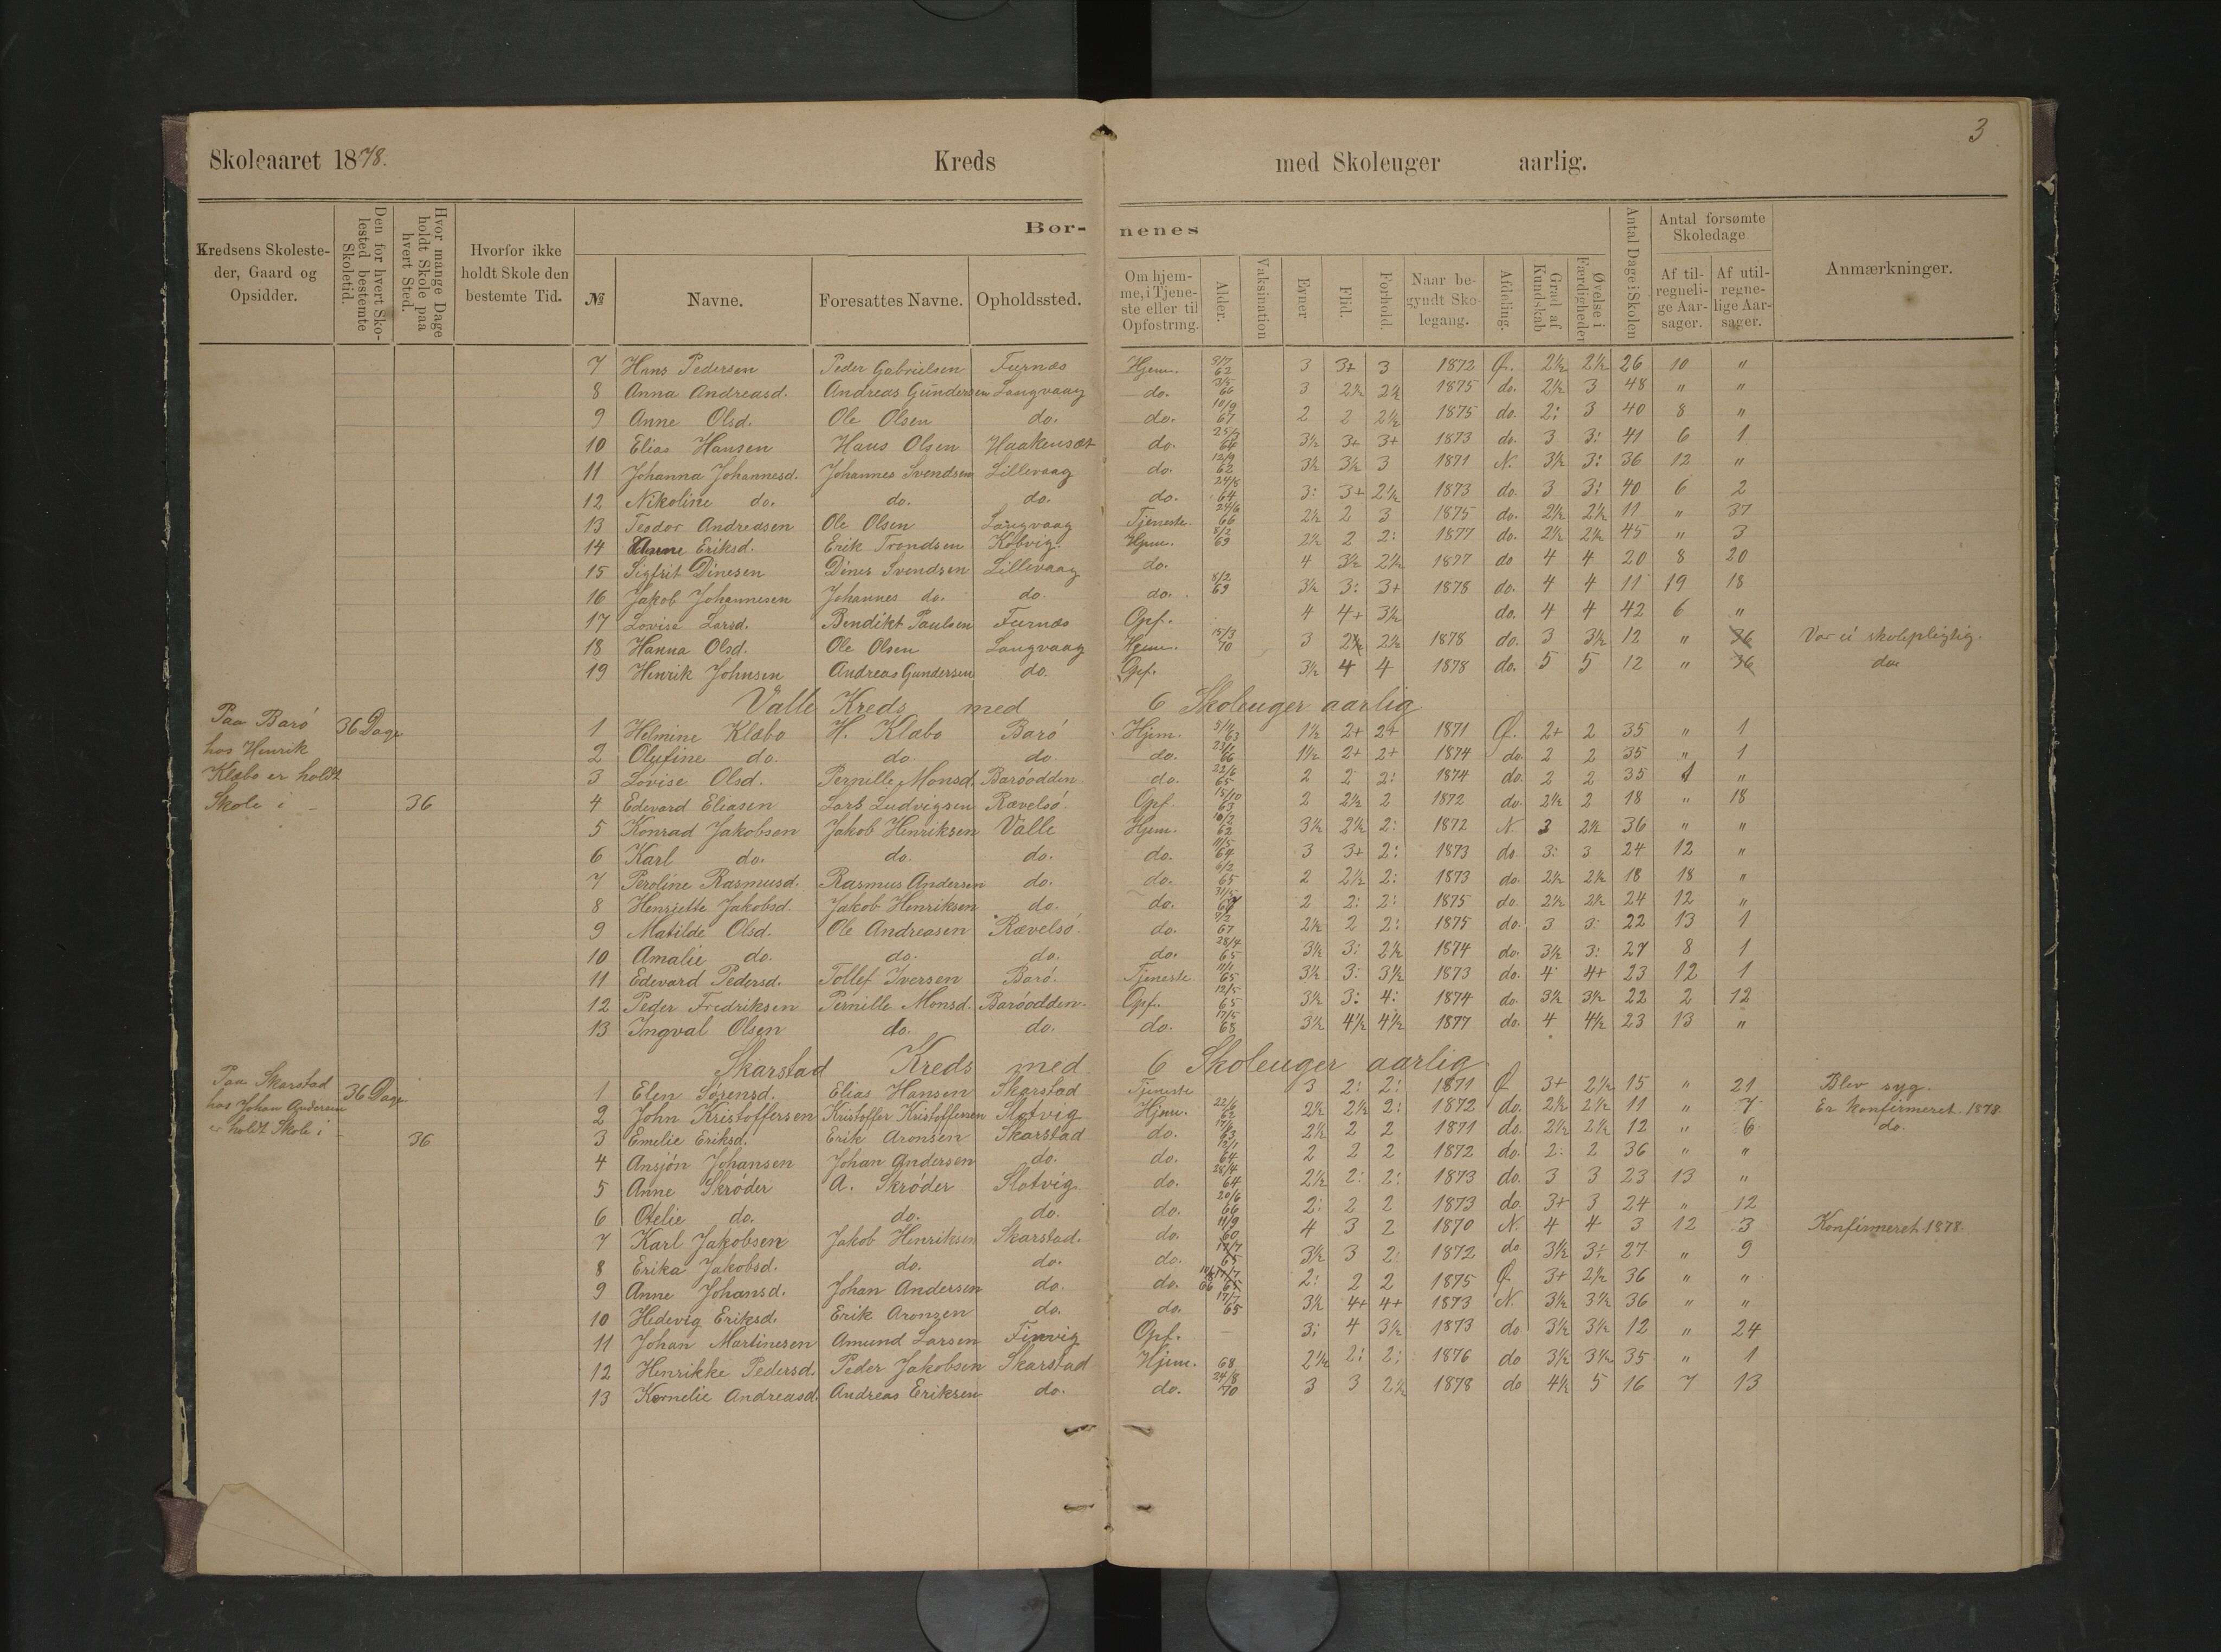 3
Skoleaaret 1878. Kreds med Skoleuger aarlig.
Kredsens Skolesteder, Gaard og Opsidder.
Den for hvert Skolested bestemte Skoletid.
Hvor mange Dage holdt Skole paa hvert Sted.
Hvorfor ikke holdt Skole den bestemte Tid.
Børnenes
№ Navne. Foresattes Navne. Opholdssted. Om hjemme, i Tjeneste eller til Opfostring. Alder. Vaksination Evner Flid. Forhold. Naar begyndt Skolegang. Afdeling. Grad af Kundskab Øvelse i Færdigheder Antal Dage i Skolen
Antal forsømte Skoledage
Af tilregnelige Aarsager. Af utilregnelige Aarsager.
Anmærkninger.
7 Hans Pedersen Peder Gabrielsen Furnæs Hjem. 9/7 62 3 3+ 3 1872 Ø. 2½ 2½ 26 10 "
8 Anna Andreasd. Andreas Gundersen Langvaag do. 3/5 66 3 2½ 2½ 1875 do. 2½ 3 48 " "
9 Anne Olsd. Ole Olsen do. do. 10/9 67 2 2 2½ 1875 do. 2: 3 40 8 "
10 Elias Hansen Hans Olsen Haakensæt do. 25/7 64 3½ 3+ 3+ 1873 do. 3 3: 41 6 1
11 Johanna Johannesd. Johannes Svendsen Lillevaag do. 12/9 62 3½ 3½ 3 1871 N. 3½ 3: 36 12 "
12 Nikoline do. do. do. do. 24/8 64 3: 3+ 2½ 1873 do. 3 3: 40 6 2
13 Teodor Andreasen Ole Olsen Langvaag Tjeneste 24/6 66 2½ 2 3 1875 do. 2½ 2½ 11 " 37
14 Anne Eriksd. Erik Trondsen Kobvig. Hjem. 8/2 69 2½ 2 2: 1877 do. 2½ 2½ 45 " 3
15 Sigfrit Dinesen Dines Svendsen Lillevaag do. 4 3½ 2½ 1877 do 4 4 20 8 20
16 Jakob Johannesen Johannes do. do. do. 8/2 69 3½ 3: 3+ 1878 do. 4 4 11 19 18
17 Lovise Larsd. Bendikt Paulsen Furnæs Opf. 4 4+ 3½ do. 4 4 42 6 "
18 Hanna Olsd. Ole Olsen Langvaag Hjem. 15/3 70 3 2½ 2½ 1878 do. 3 3½ 12 " 36 Var ei skolepligtig.
19 Henrik Johnsen Andreas Gundersen do. Opf. 3½ 4 4 1878 do. 5 5 12 " 36 do.
Valle Kreds med 6 Skoleuger aarlig
Paa Barö 36 Dage
hos Henrik
Klæbo er holdt
Skole i – 36
1 Helmine Klæbo H. Klæbo Barö Hjem. 63 1½ 2+ 2+ 1871 Ø. 2+ 2 35 " 1
2 Olufine do. do. do. do. 23/1 66 1½ 2+ 2+ 1874 do. 2 2 35 " 1
3 Lovise Olsd. Pernille Monsd. Baröodden do. 22/6 65 2 2 2: 1874 do. 2 2 35 1 "
4 Edevard Eliasen Lars Ludvigsen Rævelsö. Opf. 15/10 63 2 2½ 2 1872 do. 2½ 2 18 " 18
5 Konrad Jakobsen Jakob Henriksen Valle Hjem. 10/2 62 3½ 2½ 2: 1872 N. 3 2½ 36 " "
6 Karl do. do. do. do. 11/5 64 3 3+ 2: 1873 do 3: 3 24 12 "
7 Peroline Rasmusd. Rasmus Andersen do. do. 6/2 65 2 2½ 2: 1873 do. 2½ 2½ 18 18 "
8 Henriette Jakobsd. Jakob Henriksen do. do. 31/5 2 2: 2: 1875 do. 2½ 2½ 24 12 "
9 Matilde Olsd. Ole Andreasen Rævelsö. do. 7/2 67 2½ 2 2: 1875 do. 3 3: 22 13 1
10 Amalie do. do. do. do. 28/4 65 3½ 3: 2½ 1874 do. 3½ 3: 27 8 1
11 Edevard Pedersd. Tollef Iversen Barö. Tjeneste 11/1 65 3½ 3: 3½ 1873 do. 4 4+ 23 12 1
12 Peder Fredriksen Pernille Monsd. Baröodden. Opf. 12/5 65 3½ 3: 4: 1874 do. 3½ 3½ 22 2 12
13 Ingval Olsen do. do. do. 17/5 68 3½ 4½ 4½ 1877 do. 4 4½ 23 13 "
Skarstad Kreds med 6 Skoleuger aarlig
Paa Skarstad 36 Dage
hos Johan Andersen
er holdt Skole i – 36
1 Elen Sørensd. Elias Hansen Skarstad Tjeneste 3 2: 2: 1871 Ø 3+ 2½ 15 " 21 Blev syg.
2 John Kristoffersen Kristoffer Kristoffersen Slotvig Hjem. 22/6 62 2½ 2½ 2: 1872 do. 2½ 2½ 11 " 7 Er konfirmeret 1878.
3 Emelie Eriksd. Erik Aronsen Skarstad do. 17/6 63 2½ 2 2 1871 do. 2½ 2½ 12 " 6 do.
4 Ansjön Johansen Johan Andersen do. do. 12/1 64 2 2 2 1872 do. 2: 2 36 " "
5 Anne Skröder A. Skröder Slotvig do. 28/4 64 2½ 2: 2: 1873 do. 3 3 23 13 "
6 Otelie do. do. do. do. 20/6 66 2: 2 2 1873 do. 3+ 3 24 " 12
7 Karl Jakobsen Jakob Henriksen Skarstad. do. 11/9 60 4 3 2 1870 N. 4 4 3 12 3 Konfirmeret 1878.
8 Erika Jakobsd. do. do. do. 17/7 65 3½ 3 2: 1872 do 3½ 3: 27 " 9
9 Anne Johansd. Johan Andersen do. do. 66 17/7 65 2: 2 2 1875 Ø. 3+ 2½ 36 " "
10 Hedevig Eriksd. Erik Aronzen do. do. 17/7 65 3½ 4+ 4+ 1873 N. 3½ 3½ 36 " "
11 Johan Martinesen Amund Larsen Finvig Opf. – 3: 4 3½ 1873 do 3½ 3½ 12 " 24
12 Henrikke Pedersd. Peder Jakobsen Skarstad Hjem. 68 2½ 2: 2: 1876 do 3½ 3½ 35 " 1
13 Kornelie Andreasd. Andreas Eriksen do. do. 24/8 70 3 3 2½ 1878 do 4½ 5 16 7 13